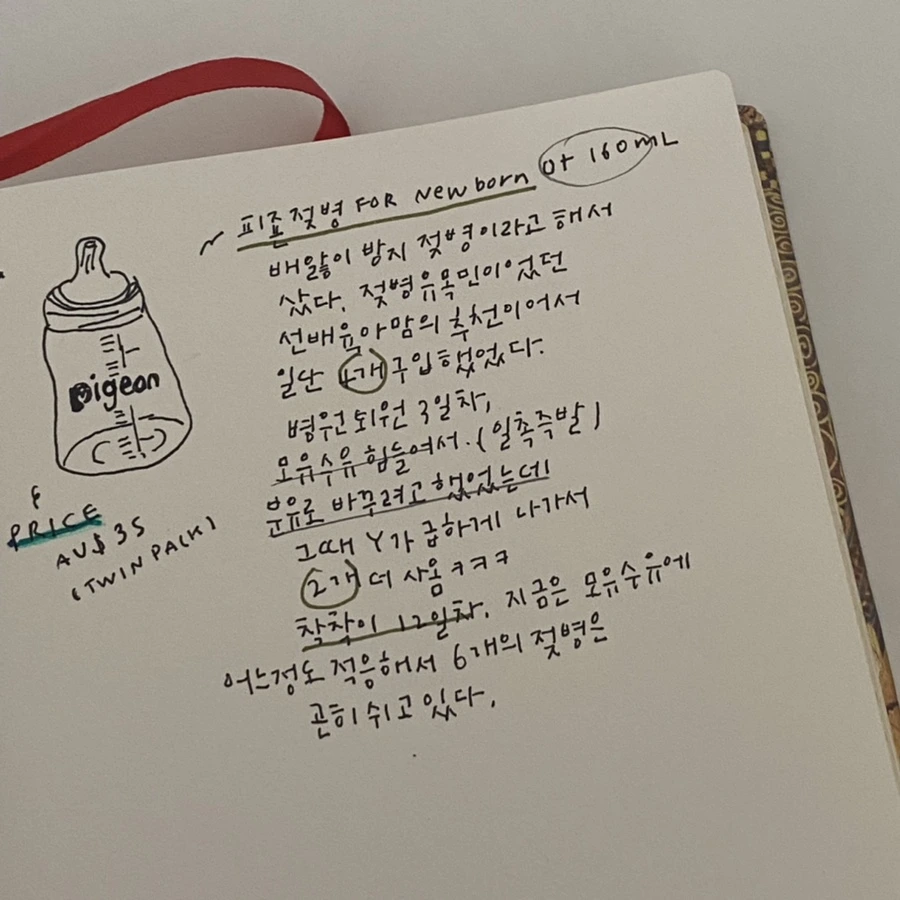 피죤젖병 FOR Newborn 0+ 160mL
배앓이 방지 젖병이라고 해서
샀다. 젖병유목민이었던
선배육아맘의 추천이어서
일단 4개 구입했었다.
병원퇴원 3일차,
모유수유 힘들여서. (일촉즉발)
분유로 바꾸려고 했었는데
그때 Y가 급하게 나가서
2개 더 사옴 ㅋㅋㅋ
착착이 12일차. 지금은 모유수유에
어느정도 적응해서 6개의 젖병은
곤히 쉬고 있다.
Pigeon
PRICE
AU$ 35
(TWIN PACK)